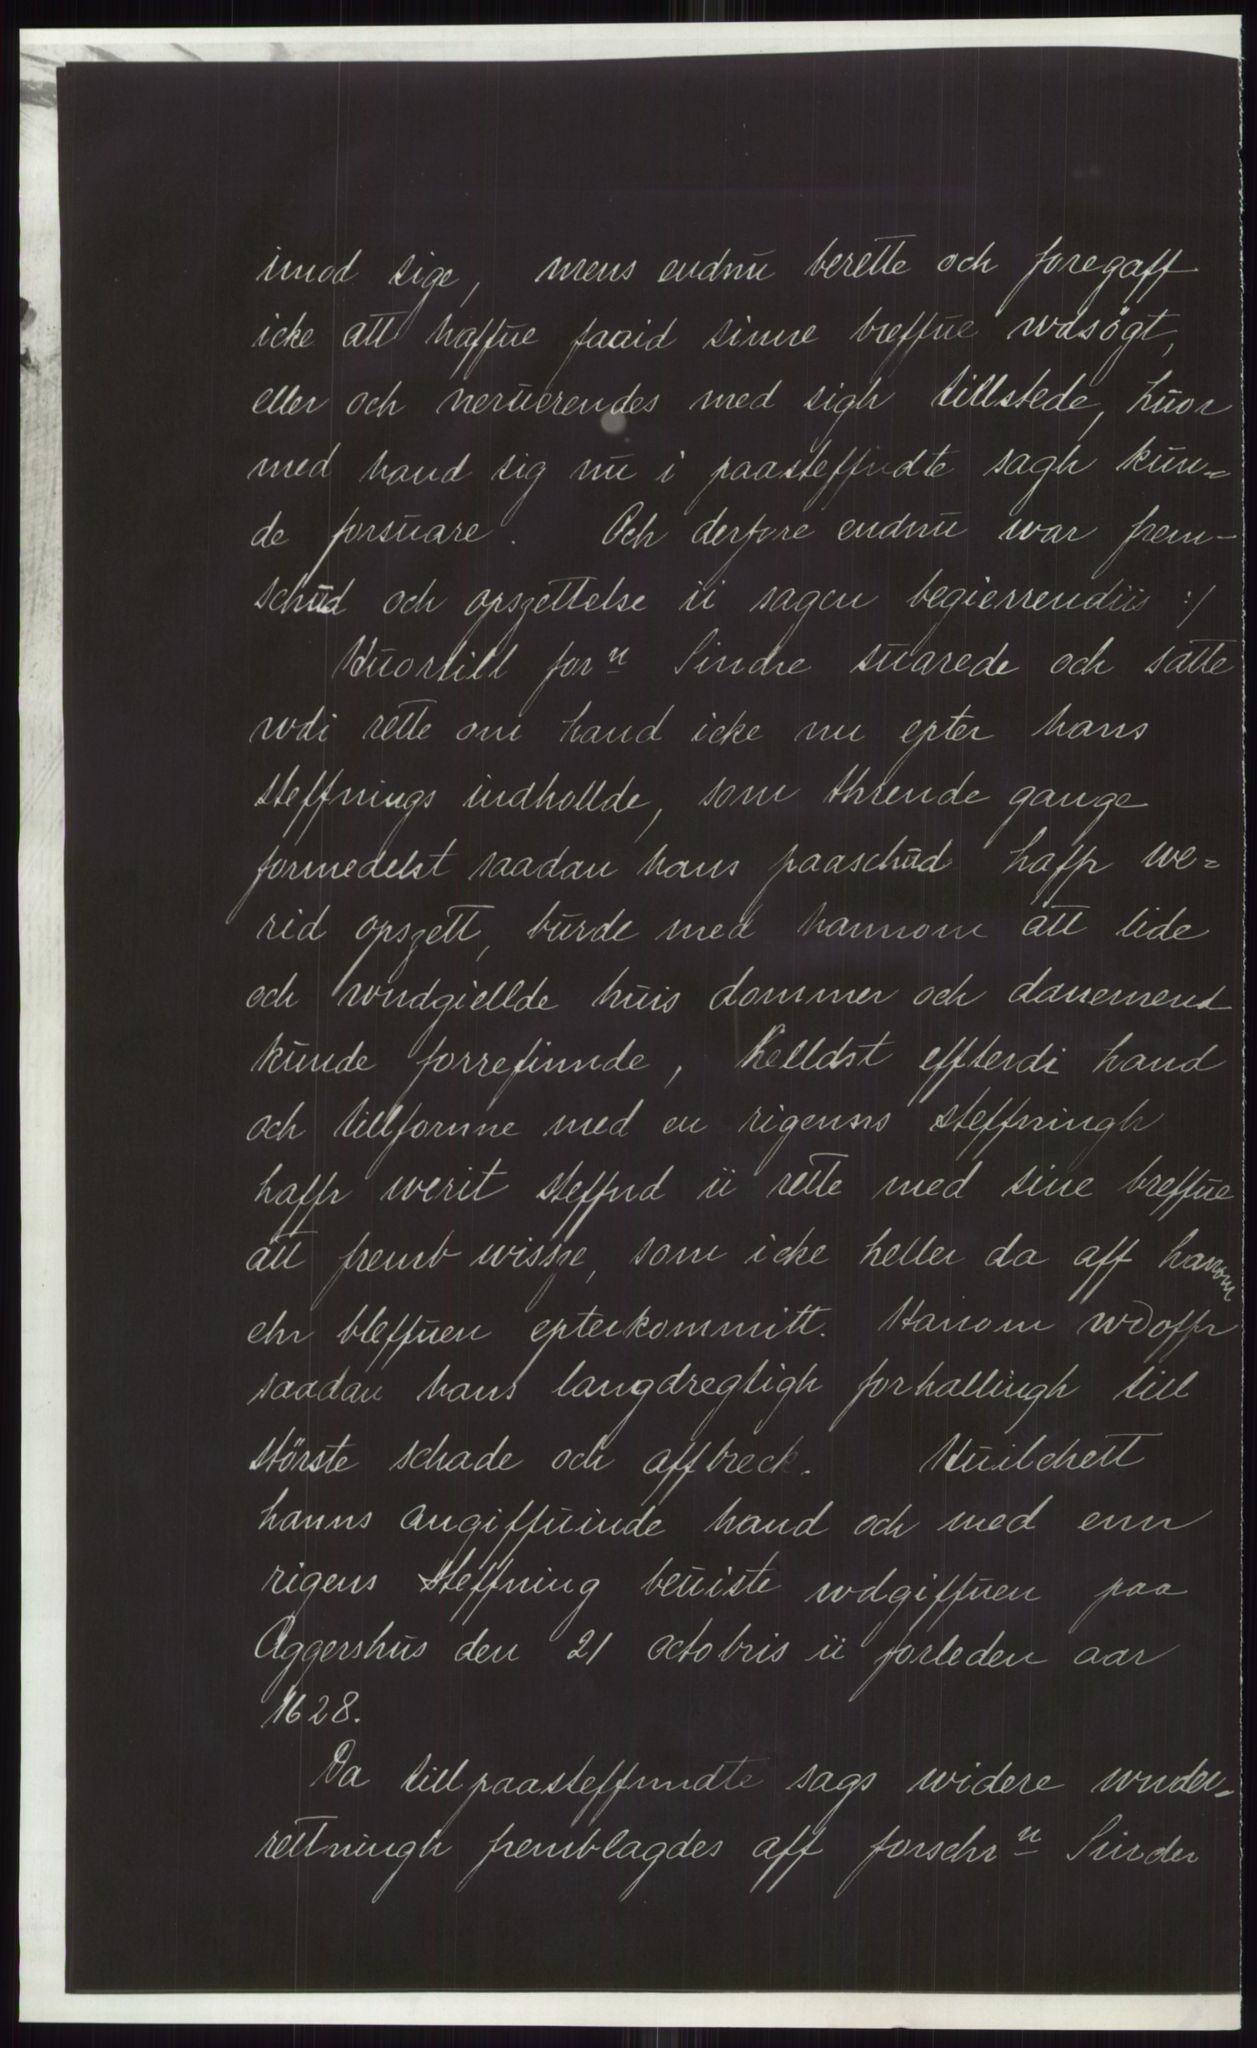 imod sige, mens endnu berette och foregaff
icke att haffue faaid sinne breffue wdsögt,
eller och neruerendes med sigh tillstede, huor
med hand sig nu i paasteffndte sagh kun=
de forsuare. Och derfore endnu war frem-
schud och opszettelse ii sagen begierrendiis :/
Huortill forn Sindre suarede och satte
wdi rette om hand icke nu epter hans
steffnings indhollde, som thrende gange
formedelst saadan hans paaschud haffr we=
rid opszett, burde med hannom att lide
och wndgiellde huis dommer och danemend
kunde forrefinnde, helldst effterdi hand
och tillfornne med en rigenses steffningh
haffr werit steffnd ii rette med sine breffue
att fremb wisze, som icke heller da aff hanom
ehr bleffuen epterkommitt. Hanom wdoffr
saadan hans langdregtigh forhallingh till
störste schade och affbreck. Huilchett
hanns angiffuinde hand och med enn
rigens steffning beuiste wdgiffuen paa
Aggershus den 21 octobris ii forleden aar
1628.
Da till paasteffnndte sags widere wnder=
rettningh fremblagdes aff forschrn Sinder